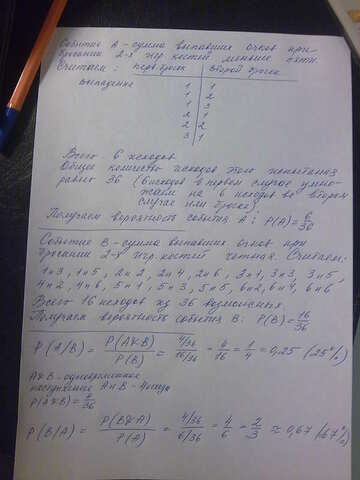 Событие A - сумма выпавших очков при
бросании 2-х игр. костей меньше пяти.
Считаем: первый брос. второй бросок
Выпадение 1 1
1 2
1 3
2 1
2 2
3 1
Всего 6 исходов
Общее количество исходов этого испытания
равно 36 (6 исходов в первом случае умно-
жаем на 6 исходов во втором
случае или броске)
Получаем вероятность события A: P(A)=6/36
Событие B - сумма выпавших очков при
бросании 2-х игр. костей четная. Считаем:
1и3, 1и5, 2и2, 2и4, 2и6, 3и1, 3и3, 3и5,
4и2, 4и6, 5и1, 5и3, 5и5, 6и2, 6и4, 6и6
Всего 16 исходов из 36 возможных.
Получаем вероятность события B: P(B)=16/36
P(A/B) = P(A&B)/P(B) = 4/36/16/36 = 4/16 = 1/4 = 0,25 (25%)
A&B - одновременное
наступление A и B - 4 исхода
P(A&B)=4/36
P(B/A) = P(B&A)/P(A) = 4/36/6/36 = 4/6 = 2/3 ≈ 0,67 (67%)